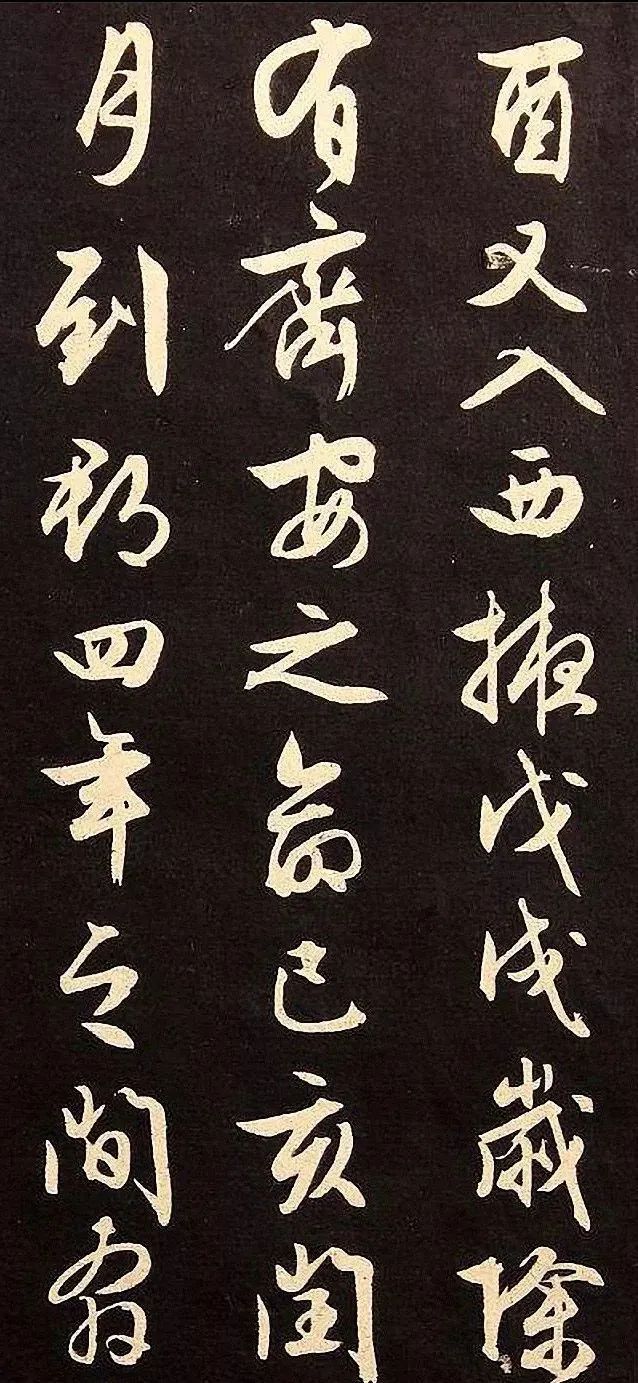 酉又入西掖戊戌歲除
有齊安之命己亥閏
月到郡四年之間奔